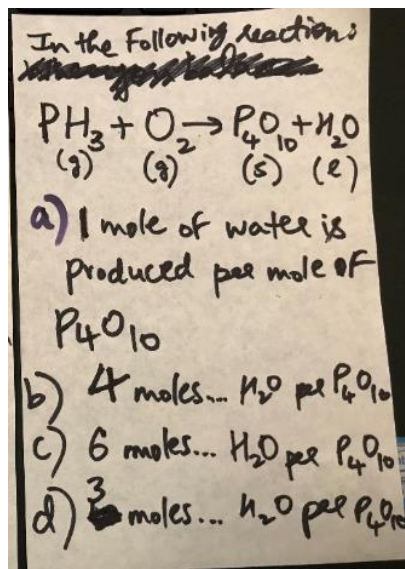 In the Following reaction:
PH₃ + O₂ → P₄O₁₀ + H₂O
(g) (g) (s) (l)
a) 1 mole of water is
produced per mole of
P₄O₁₀
b) 4 moles... H₂O per P₄O₁₀
c) 6 moles... H₂O per P₄O₁₀
d) 3 moles... H₂O per P₄O₁₀